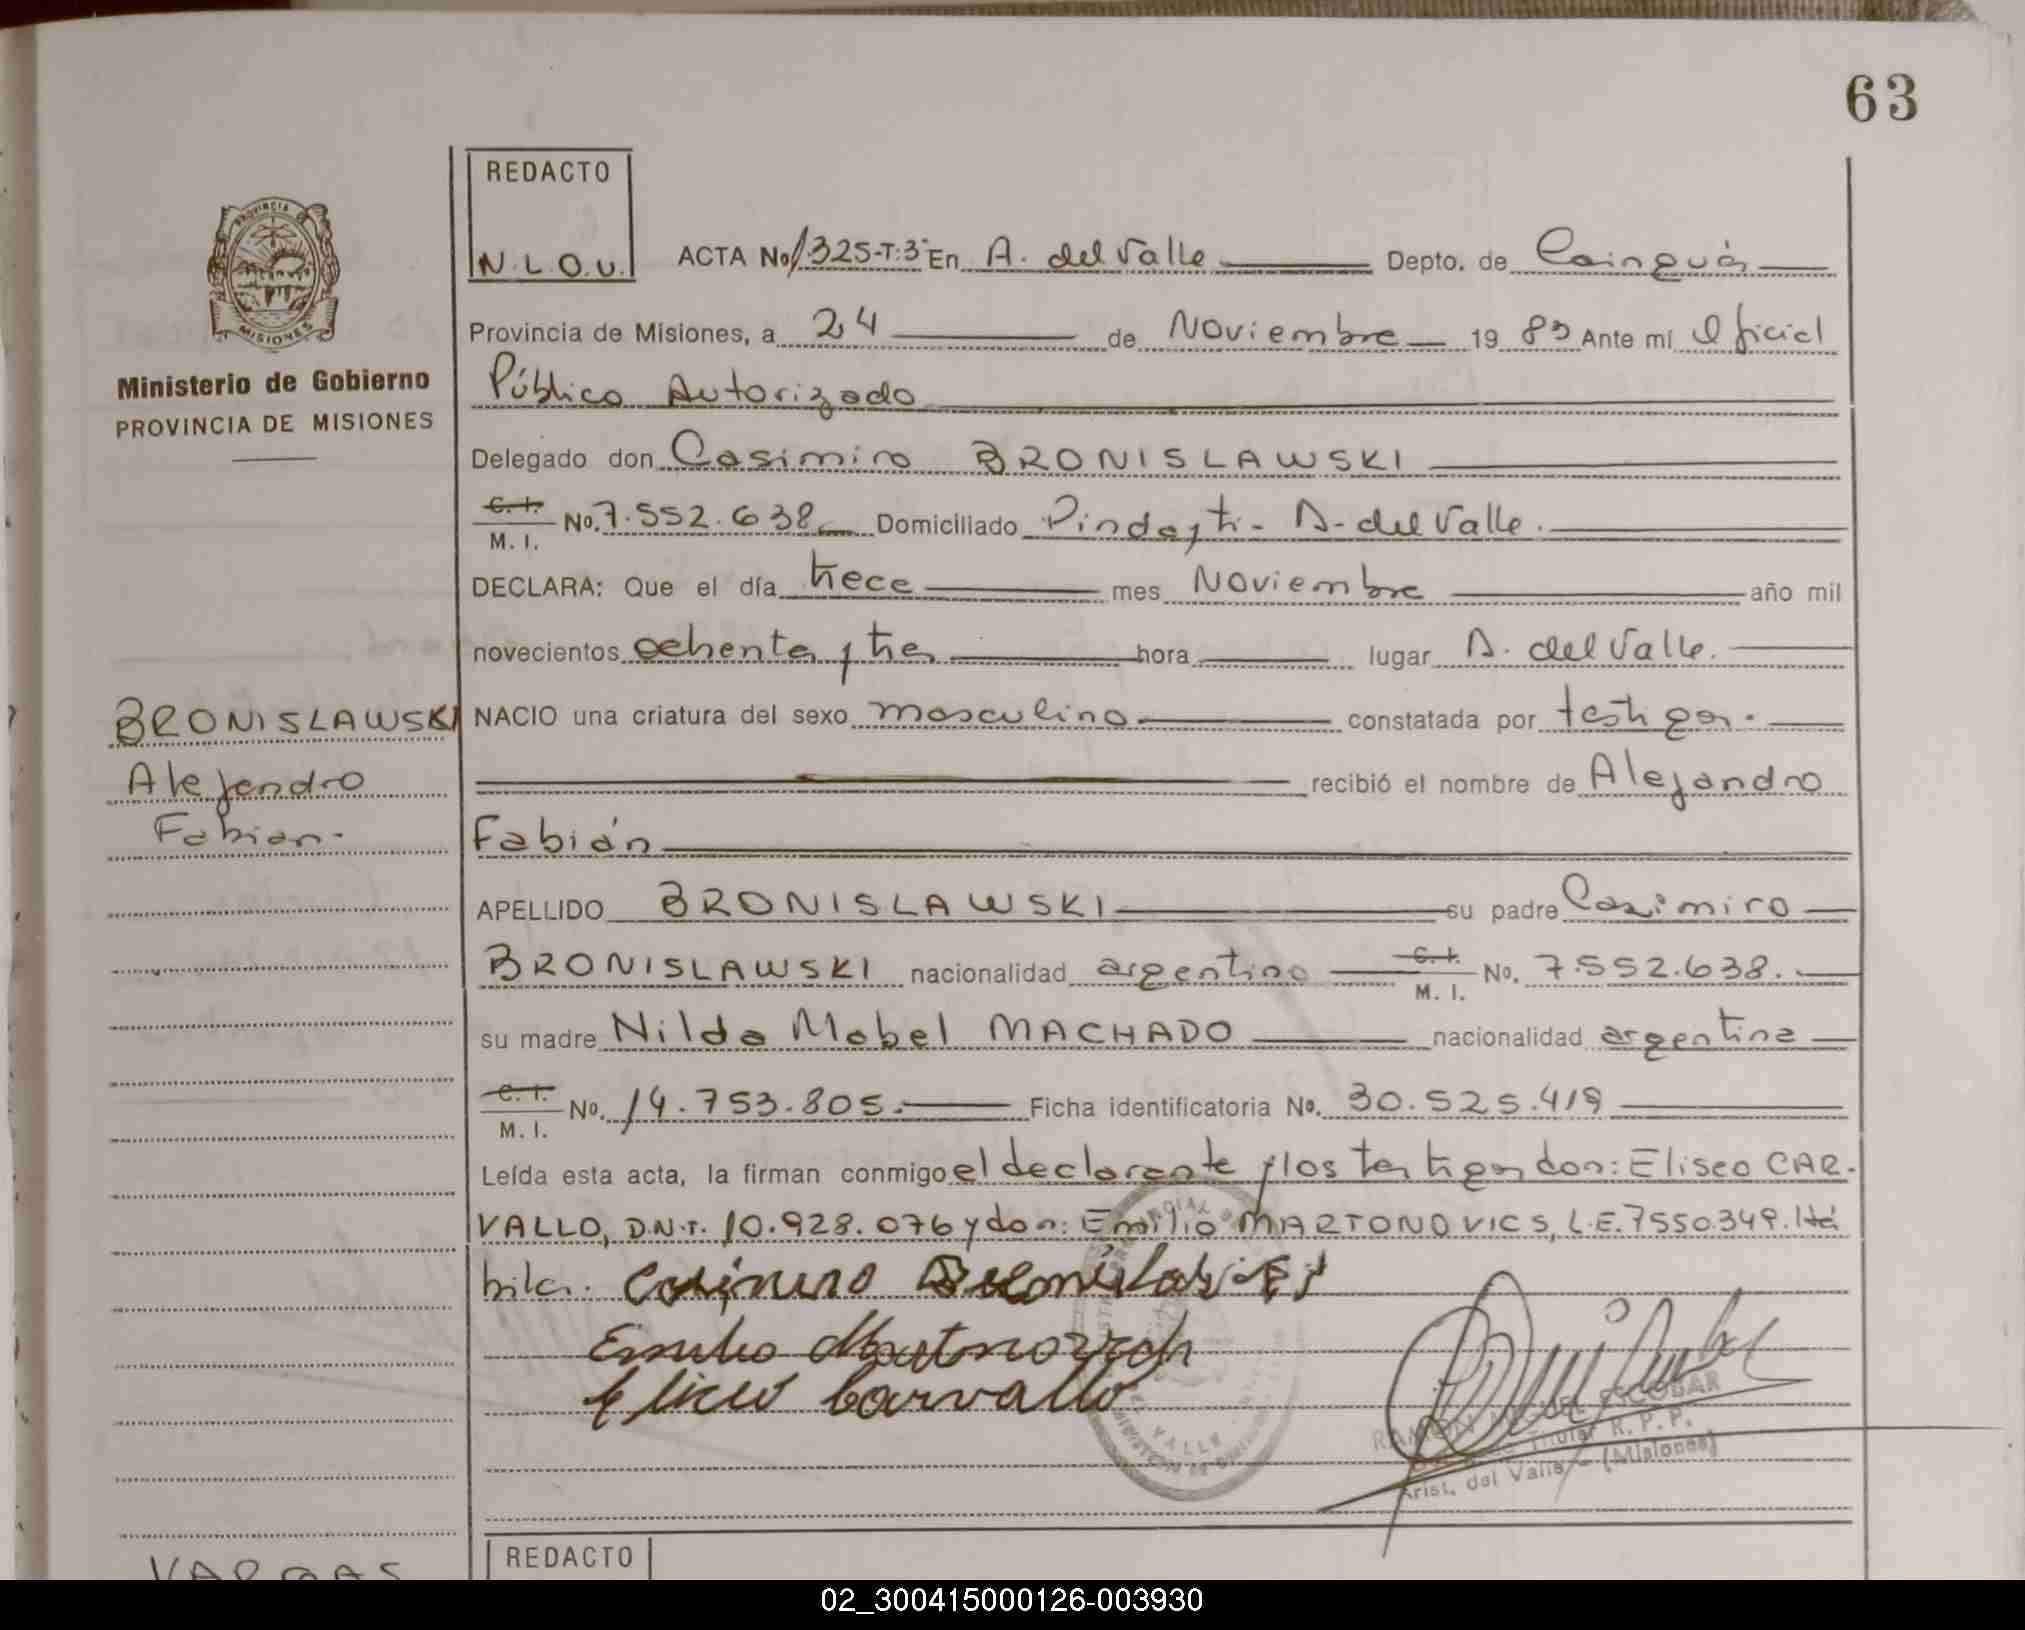 63
REDACTO
N.L.O.U.
ACTA No 1.325-T:3° En A. del Valle Depto. de Cainguás
PROVINCIA DE MISIONES
Provincia de Misiones, a 24 de Noviembre 19 83 Ante mí Oficial
Público Autorizado
Ministerio de Gobierno
PROVINCIA DE MISIONES
Delegado don Casimiro BRONISLAWSKI
C. I.
M. I. No. 7.552.638 Domiciliado Pindayti - A. del Valle.
DECLARA: Que el día trece mes Noviembre año mil
novecientos ochenta y tres hora lugar A. del Valle.
BRONISLAWSKI
Alejandro
Fabian.
NACIO una criatura del sexo masculino constatada por testigos.
recibió el nombre de Alejandro
Fabián
APELLIDO BRONISLAWSKI su padre Casimiro
BRONISLAWSKI nacionalidad argentino C. I. M. I. No. 7.552.638.
su madre Nilda Mabel MACHADO nacionalidad argentina
C. I.
M. I. No. 14.753.805. Ficha identificatoria No. 30.525.419
Leída esta acta, la firman conmigo el declarante y los testigos don: Eliseo CAR-
VALLO, D.N.I. 10.928.076 y don: Emilio MARTONOVICS, L.E. 7550.349.
Casimiro Bronislavski
Emilio
Eliseo Carvallo
RAMON MIGUEL ESCOBAR
Titular R. P. P.
Arist. del Valle - (Misiones)
VARGAS
REDACTO
02_300415000126-003930